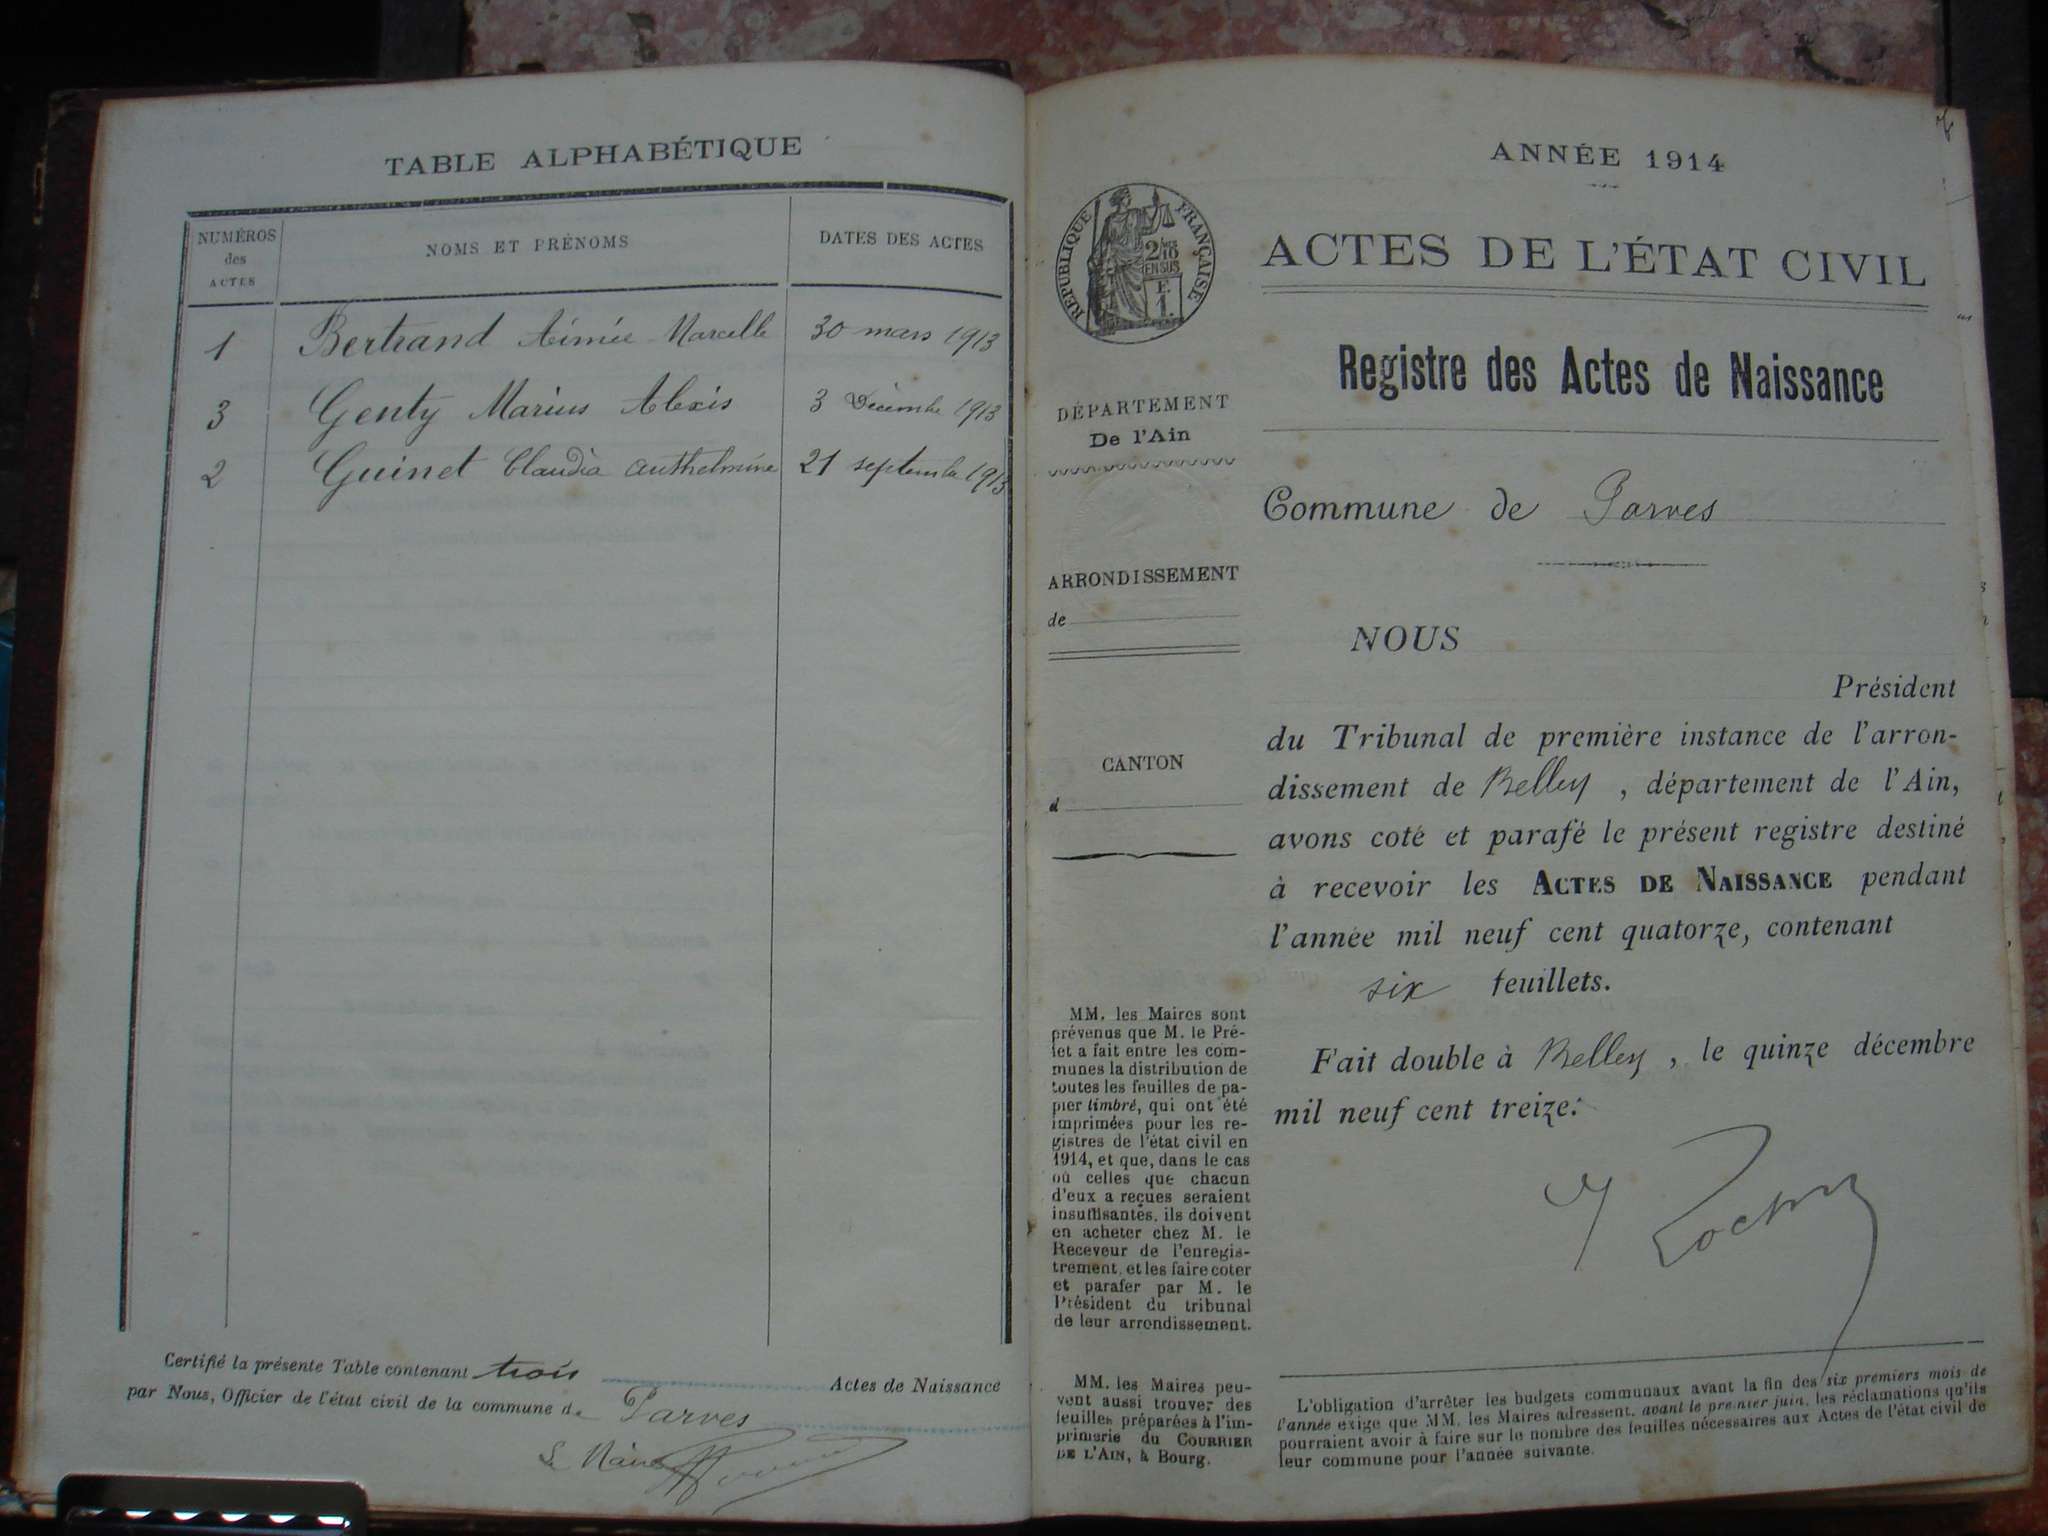 TABLE ALPHABÉTIQUE
NUMÉROS
des
ACTES
NOMS ET PRÉNOMS
DATES DES ACTES
1 Bertrand Aimée Marcelle 30 mars 1913
3 Genty Marius Alexis 3 Décembre 1913
2 Guinet Claudia Anthelmine 21 septembre 1913
Certifié la présente Table contenant trois Actes de Naissance
par Nous, Officier de l'état civil de la commune de Parves
Le Maire
ANNÉE 1914
RÉPUBLIQUE FRANÇAISE
2/10
EN SUS
F.
1.
ACTES DE L'ÉTAT CIVIL
Registre des Actes de Naissance
DÉPARTEMENT
De l'Ain
Commune de Parves
ARRONDISSEMENT
de
CANTON
d
NOUS
Président
du Tribunal de première instance de l'arron-
dissement de Belley, département de l'Ain,
avons coté et parafé le présent registre destiné
à recevoir les ACTES DE NAISSANCE pendant
l'année mil neuf cent quatorze, contenant
six feuillets.
Fait double à Belley, le quinze décembre
mil neuf cent treize.
MM. les Maires sont
prévenus que M. le Pré-
fet a fait entre les com-
munes la distribution de
toutes les feuilles de pa-
pier timbré, qui ont été
imprimées pour les re-
gistres de l'état civil en
1914, et que, dans le cas
où celles que chacun
d'eux a reçues seraient
insuffisantes, ils doivent
en acheter chez M. le
Receveur de l'enregis-
trement, et les faire coter
et parafer par M. le
Président du tribunal
de leur arrondissement.
MM. les Maires peu-
vent aussi trouver des
feuilles préparées à l'im-
primerie du COURRIER
DE L'AIN, à Bourg.
L'obligation d'arrêter les budgets communaux avant la fin des six premiers mois de
l'année exige que MM. les Maires adressent, avant le premier juin, les réclamations qu'ils
pourraient avoir à faire sur le nombre des feuilles nécessaires aux Actes de l'état civil de
leur commune pour l'année suivante.